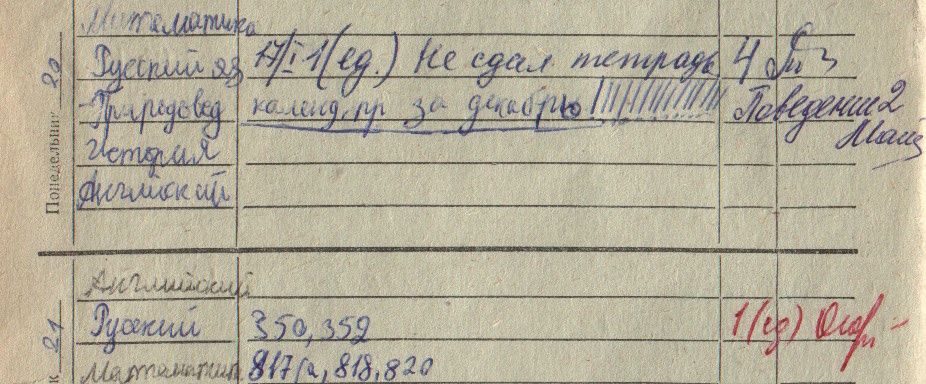 Математика
Понедельник 20
Русский яз 17/I 1(ед.) Не сдал тетрадь 4
Природовед календ, пр за декабрь Поведение 2
История
Английский
Английский
21
Русский 350, 352 1(ед)
Математик. 817а, 818, 820